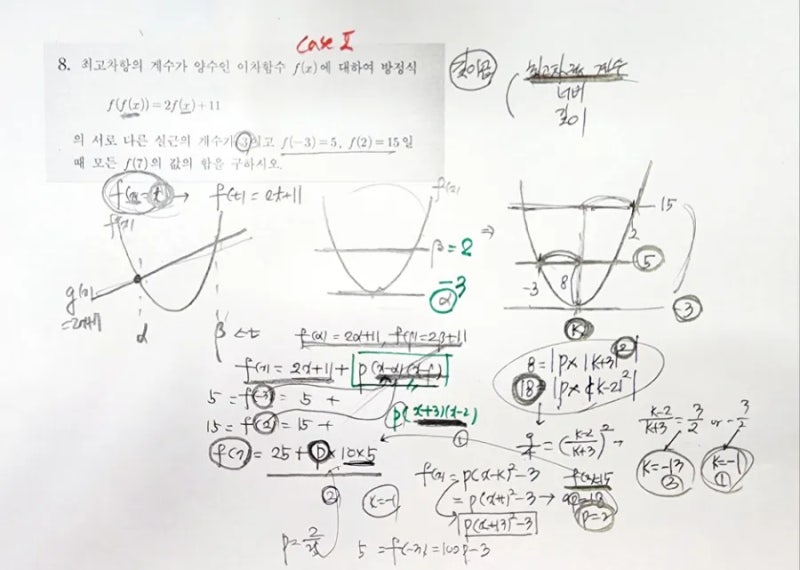 case II
8. 최고차항의 계수가 양수인 이차함수 f(x)에 대하여 방정식
f(f(x))=2f(x)+11
의 서로 다른 실근의 개수가 3이고 f(-3)=5, f(2)=15일
때 모든 f(7)의 값의 합을 구하시오.
최고차항 계수
너비
깊이
→ f(t)=2t+11
f(x)
g(x)
=2x+11
α
β
f(x)
β=2
α
-3
⇒
15
2
5
-3
8
-3
K
f(α)=2α+11, f(β)=2β+11
f(x)=2x+11+ p(x-α)(x-β)
5=f(-3)=5+
p(x+3)(x-2)
15=f(2)=15+
①
f(7)=25+p×10×5
②
8=|p×|K+3|²|
18=|p×|K-2|²|
9/4=(K-2/K+3)²→
K-2/K+3=3/2 or -3/2
K=-13
②
K=-1
①
f(x)=p(x-K)²-3
f(2)=15
K=-1
=p(x+1)²-3→9p=18
p=2
p(x+13)²-3
p=2/25
5=f(-3)=100p-3